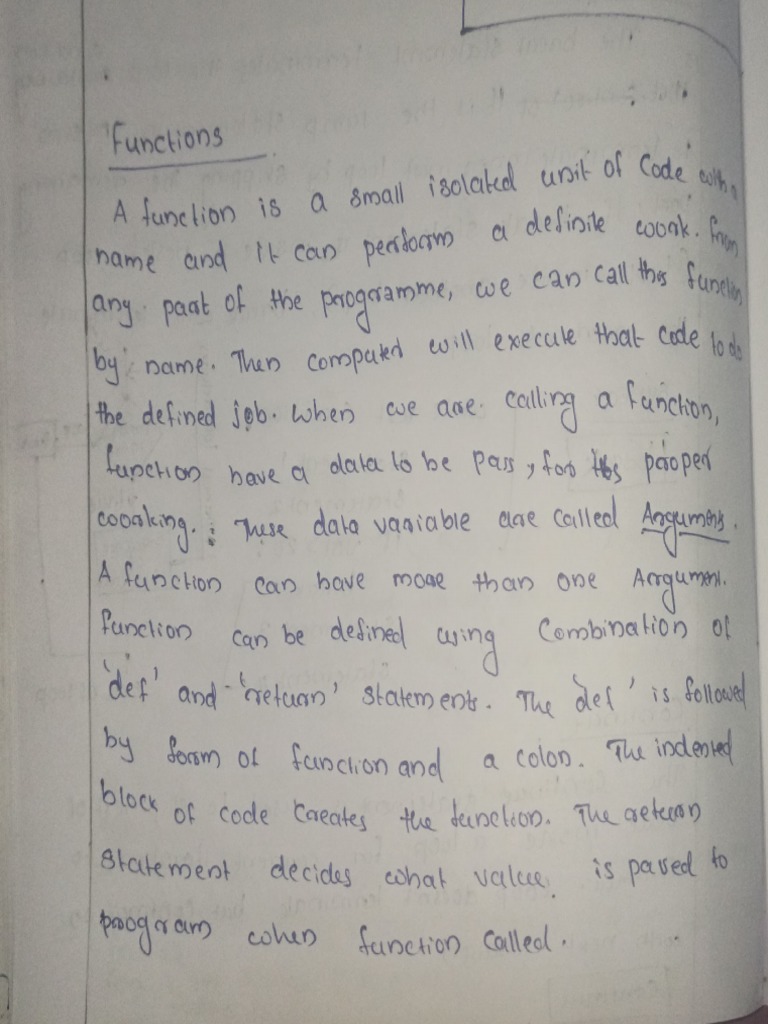 Functions
A function is a small isolated unit of Code with a
name and it can perform a definite work. From
any part of the programme, we can call this function
by name. Then computer will execute that code to do
the defined job. When we are calling a function,
function have a data to be pass, for its proper
working. These data variable are called Arguments.
A function can have more than one Argument.
function can be defined using Combination of
'def' and 'return' statements. The 'def' is followed
by form of function and a colon. The indented
block of code Creates the function. The return
Statement decides what value is pased to
program when function called.